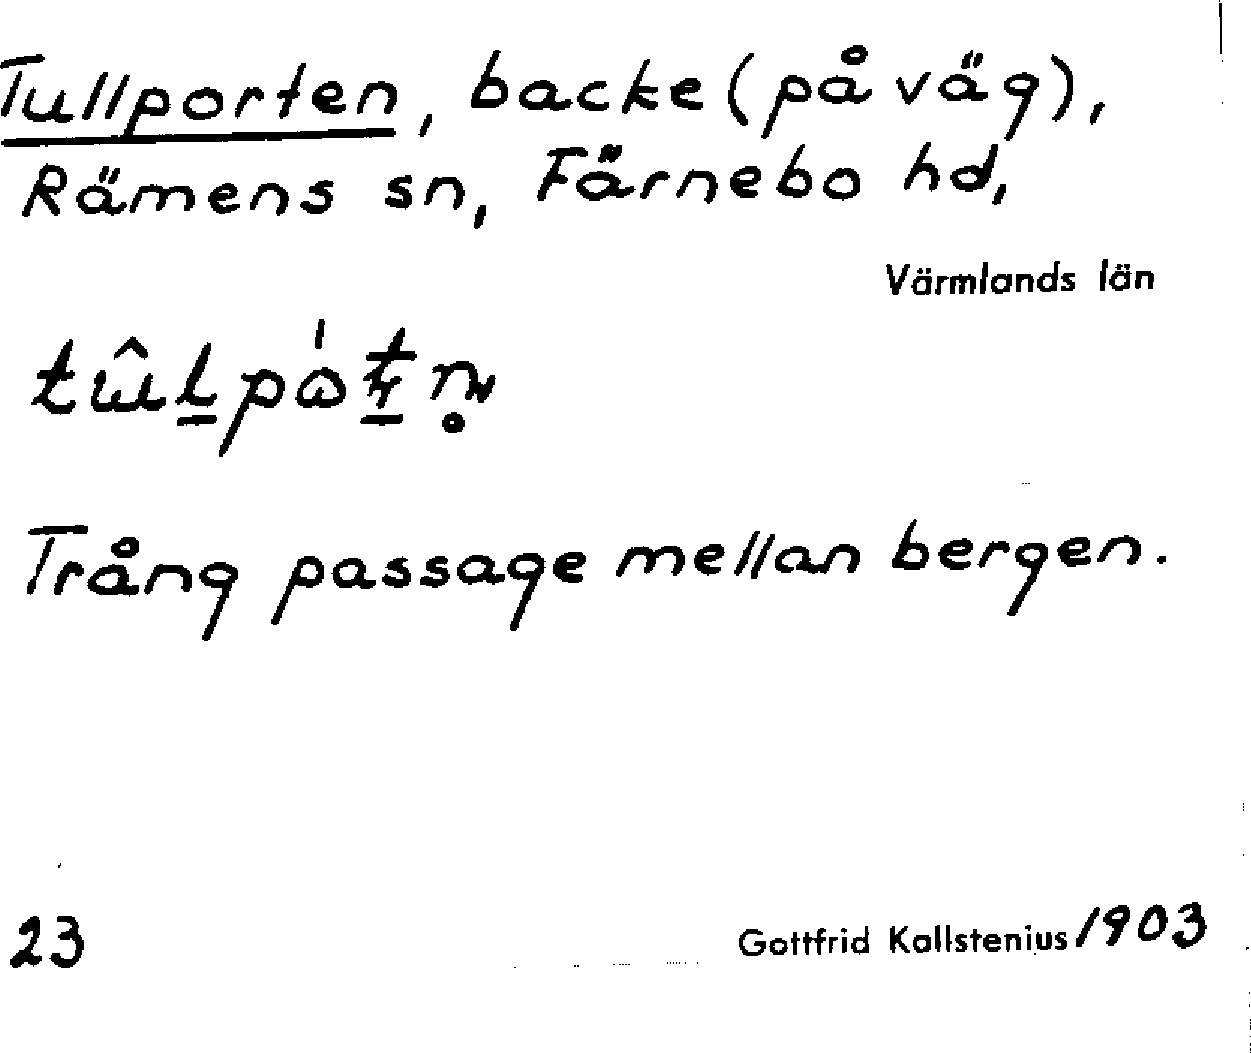 Tullporten, backe (på väg),
Rämens sn, Färnebo hd,
Värmlands län
Trång passage mellan bergen.
23
Gottfrid Kallstenius 1903